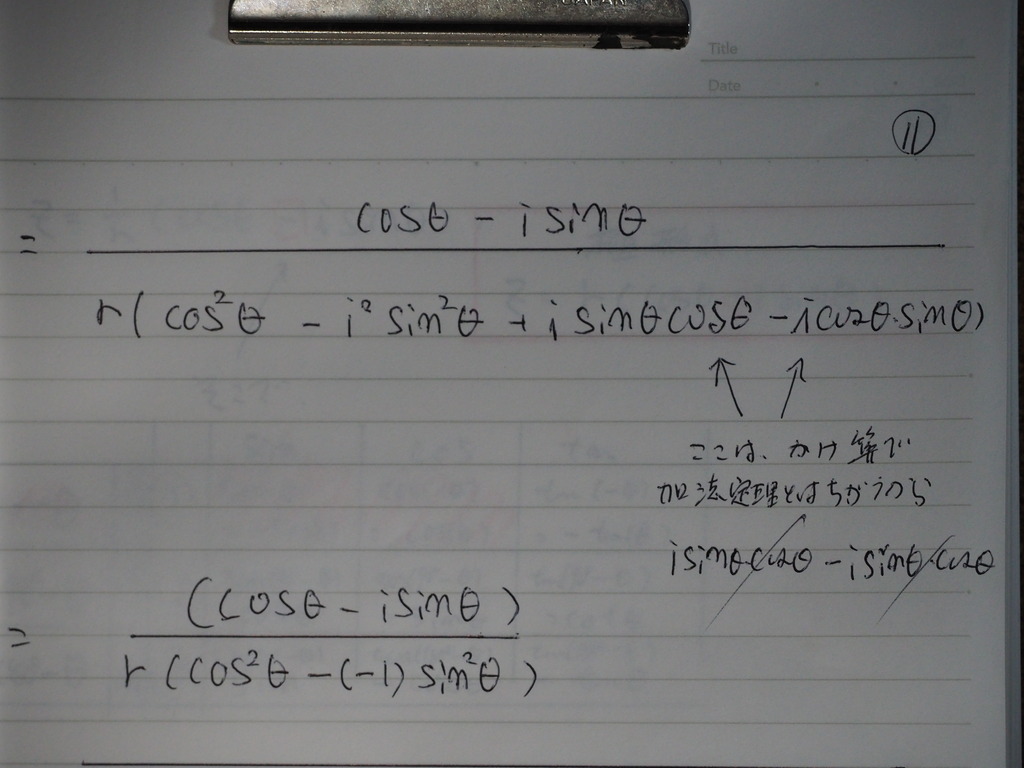 JAPAN
Title
Date
⑪
= cosθ - i sinθ
r(cos²θ - i² sin²θ + i sinθ cosθ - i cosθ·sinθ)
ここは、かけ算で
加法定理とはちがうから
i sinθ·cosθ - i sinθ·cosθ
= (cosθ - i sinθ)
r(cos²θ - (-1) sin²θ)